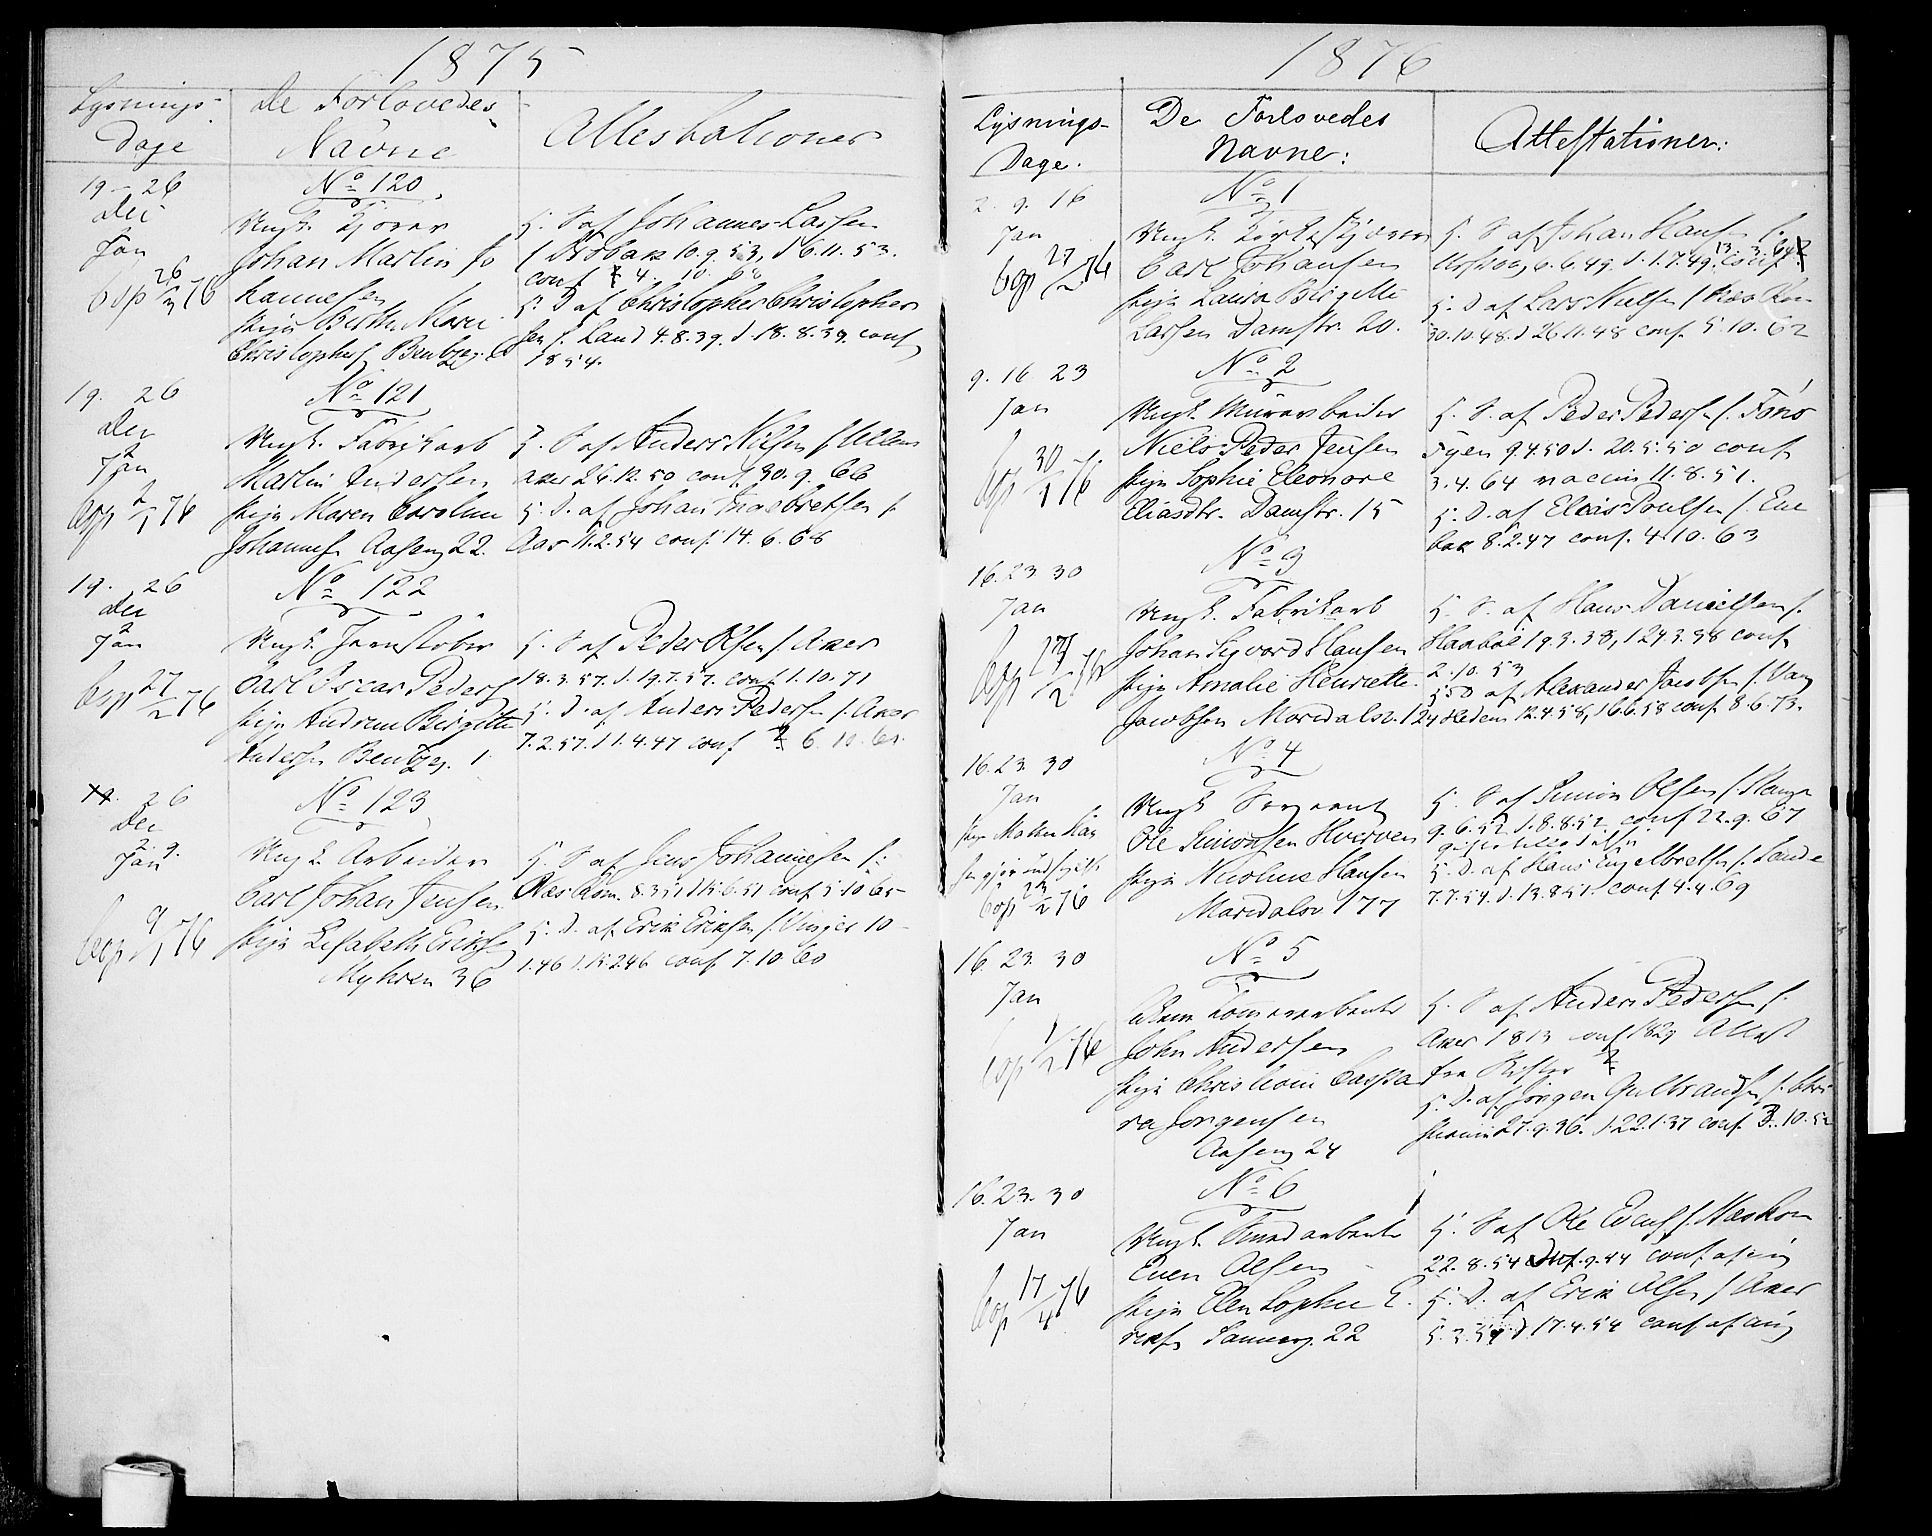 1875
Lysnings-
Dage
De Forlovedes
Navne
Attestationer
19 - 26
Dec
Jan
Cop 26/3 76
No 120
Ungk.
Johan Martin Jo
hannesen
Pige Berthe Marie
Christophers. Bentzeg.
S. af Johannes Larsen
f. Drøbak 10.9.53, d 6.11.53.
conf 4. 10. 68
D af Christopher Christopher
sen f. Land 4.8.39. d. 18.8.39. conf
1854.
19. 26
Dec
2
Jan
Cop 2/1 76
No 121
Ungk. Fabrikarb
Martin Andersen
Pige Maren Caroline
Johannes. Aaseng 22.
S af Anders Nielsen f Ullens
aker 26.12.50 conf. 30.9.66
D. af Johan Ingebretsen f.
Aas 11.2.54 conf. 14.6.68
19. 26
Dec
2
Jan
Cop 27/2 76
No 122
Ungk. Jernstøber
Carl Oscar Peders
Pige Andrine Birgitte
Anders. Bentzeg. 1
S af Peder Olsen f. Aker
18.3.57. d. 19.7.57. conf. 1.10.71
D. af Anders Pedersen f. Aker
7.2.57. d 1.4.47 conf 6.10.61.
19. 26
Dec
2. 9.
Jan
Cop 9/1 76
No 123
Ungk. Arbeider
Carl Johan Jensen
Pige Lisabeth Eriks.
Myhren 36
S af Jens Johannesen f.
Næs Rom. 8.3.51 d 15.6.51 conf 5.10.65
D. af Erik Eriksen f. Vinger 10
1.46 d. 15.2.46 conf. 7.10.60
1876
Lysnings-
Dage.
De Forlovedes
Navne:
Attestationer:
2. 9. 16
Jan
Cop 27/2 76
No 1
Ungk.
Carl Johansen
Pige Laura Birgitte
Larsen Damstr. 20.
S. af Johan Hansen f.
6.6.49. d. 1.7.49. conf. 13.3.64
D. af Lars Nielsen f Næs Rom
30.10.48. d 26.11.48 conf. 5.10.62
9. 16 23
Jan
Cop 30/1 76
No 2
Ungk. Murarbeider
Niels Peder Jensen
Pige Sophie Eleonore
Eliasdtr. Damstr. 15
S. af Peder Pedersen f. Föns
Fyen 9.4.50 d. 20.5.50 conf
3.4.64 vaccin 11.8.51.
D. af Elias Poulsen f. Ene
bak 8.2.47 conf. 4.10.63
16. 23 30
Jan
Cop 27/2 76
No 3
Ungk. Fabrikarb
Johan Sigvard Hansen
Pige Amalie Henriette
Jacobsen Maridalsv. 124
S. af Hans Danielsen f.
Haabøl 19.3.38, d 24.3.38 conf
2.10.53
D af Alexander Jacobsen f. Vang
Hedem 12.4.58, 16.6.58 conf. 8.6.73.
16. 23. 30
Jan
Cop 23/2 76
No 4
Ungk. Sergeant
Ole Simonsen Hverven
Pige Nicoline Hansen
Maridalsv 177
S af Simon Olsen f. Stange
9.6.52 d. 8.8.52. conf 22.9.67
D. af Hans Engelbretsen f. Sande
7.7.54 d. 13.8.54. conf. 4.4.69
16. 23. 30
Jan
Cop 1/2 76
No 5
John Andersen
Pige Christiane Caspa
ra Jørgensen
Aaseng 24
S af Anders Pedersen f.
Aker 1813 conf 1829 Attest
fra
D. af Jørgen Gulbrandsen f. Chri
stiania 27.9.36. d. 22.1.37 conf. 3.10.52
16. 23. 30
Jan
Cop 17/4 76
No 6
Ungk.
Even Olsen
Pige Elen Sophie E.
riks. Sannerg. 22
S af Ole Evens. f. Næs Rom
22.8.54
D. af Erik Olsen f Aker
5.3.54 d 17.4.54